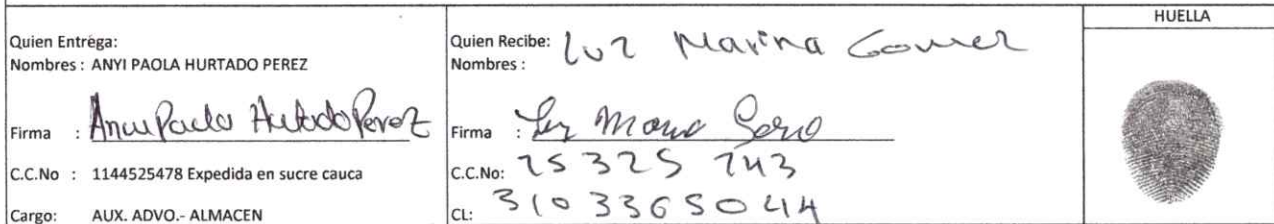 Quien Entrega:
Nombres : ANYI PAOLA HURTADO PEREZ
Firma : Anyi Paola Hurtado Perez
C.C.No : 1144525478 Expedida en sucre cauca
Cargo: AUX. ADVO.- ALMACEN
Quien Recibe: Luz Marina Gomez
Nombres :
Firma : Luz
C.C.No: 25325743
CL: 3103365044
HUELLA